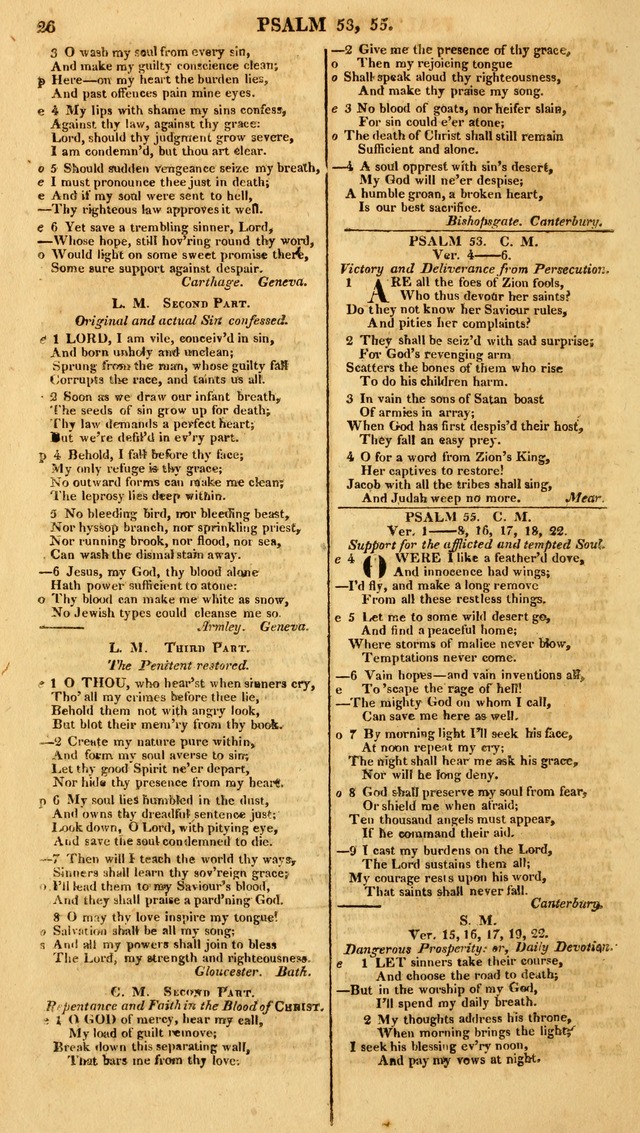 26
PSALM 53, 55.
3 O wash my soul from every sin,
And make my guilty conscience clean;
p Here—on my heart the burden lies,
And past offences pain mine eyes.
e 4 My lips with shame my sins confess,
Against thy law, against thy grace:
Lord, should thy judgment grow severe,
I am condemn'd, but thou art clear.
o 5 Should sudden vengeance seize my breath,
e I must pronounce thee just in death;
e And if my soul were sent to hell,
—Thy righteous law approves it well.
e 6 Yet save a trembling sinner, Lord,
—Whose hope, still hov'ring round thy word,
o Would light on some sweet promise there,
Some sure support against despair.
Carthage. Geneva.
L. M. SECOND PART.
Original and actual Sin confessed.
e 1 LORD, I am vile, conceiv'd in sin,
And born unholy and unclean;
Sprung from the man, whose guilty fall
Corrupts the race, and taints us all.
2 Soon as we draw our infant breath,
The seeds of sin grow up for death;
Thy law demands a perfect heart;
But we're defil'd in ev'ry part.
p 4 Behold, I fall before thy face;
My only refuge is thy grace;
No outward forms can make me clean;
The leprosy lies deep within.
5 No bleeding bird, nor bleeding beast,
Nor hyssop branch, nor sprinkling priest,
Nor running brook, nor flood, nor sea,
Can wash the dismal stain away.
—6 Jesus, my God, thy blood alone
Hath power sufficient to atone:
o Thy blood can make me white as snow,
No Jewish types could cleanse me so.
Armley. Geneva.
L. M. THIRD PART.
The Penitent restored.
e 1 O THOU, who hear'st when sinners cry,
Tho' all my crimes before thee lie,
Behold them not with angry look,
But blot their mem'ry from thy book.
—2 Create my nature pure within,
And form my soul averse to sin;
Let thy good Spirit ne'er depart,
Nor hide thy presence from my heart.
p 6 My soul lies humbled in the dust,
And owns thy dreadful sentence just;
Look down, O Lord, with pitying eye,
And save the soul condemned to die.
—7 Then will I teach the world thy ways,
Sinners shall learn thy sov'reign grace;
o I'll lead them to my Saviour's blood,
And they shall praise a pard'ning God.
8 O may thy love inspire my tongue!
o Salvation shall be all my song;
s And all my powers shall join to bless
The Lord, my strength and righteousness.
Gloucester. Bath.
C. M. SECOND PART.
Repentance and Faith in the Blood of CHRIST.
e 1 O GOD of mercy, hear my call,
My load of guilt remove;
Break down this separating wall,
That bars me from thy love.
—2 Give me the presence of thy grace,
o Then my rejoicing tongue
o Shall speak aloud thy righteousness,
And make thy praise my song.
e 3 No blood of goats, nor heifer slain,
For sin could e'er atone;
o The death of Christ shall still remain
Sufficient and alone.
—4 A soul opprest with sin's desert,
My God will ne'er despise;
A humble groan, a broken heart,
Is our best sacrifice.
Bishopsgate. Canterbury.
PSALM 53. C. M.
Ver. 4——6.
Victory and Deliverance from Persecution.
1 ARE all the foes of Zion fools,
Who thus devour her saints?
Do they not know her Saviour rules,
And pities her complaints?
2 They shall be seiz'd with sad surprise;
For God's revenging arm
Scatters the bones of them who rise
To do his children harm.
3 In vain the sons of Satan boast
Of armies in array;
When God has first despis'd their host,
They fall an easy prey.
4 O for a word from Zion's King,
Her captives to restore!
Jacob with all the tribes shall sing,
And Judah weep no more. Mear.
PSALM 55. C. M.
Ver. 1——8, 16, 17, 18, 22.
Support for the afflicted and tempted Soul.
e 4 O WERE I like a feather'd dove,
And innocence had wings;
—I'd fly, and make a long remove
From all these restless things.
e 5 Let me to some wild desert go,
And find a peaceful home;
Where storms of malice never blow,
Temptations never come.
—6 Vain hopes—and vain inventions all,
e To 'scape the rage of hell!
—The mighty God on whom I call,
Can save me here as well.
o 7 By morning light I'll seek his face,
At noon repeat my cry;
The night shall hear me ask his grace,
Nor will he long deny.
o 8 God shall preserve my soul from fear,
Or shield me when afraid;
Ten thousand angels must appear,
If he command their aid.
—9 I cast my burdens on the Lord,
The Lord sustains them all;
My courage rests upon his word,
That saints shall never fall.
Canterbury.
S. M.
Ver. 15, 16, 17, 19, 22.
Dangerous Prosperity: or, Daily Devotion.
e 1 LET sinners take their course,
And choose the road to death;
—But in the worship of my God,
I'll spend my daily breath.
2 My thoughts address his throne,
When morning brings the light;
I seek his blessing ev'ry noon,
And pay my vows at night.